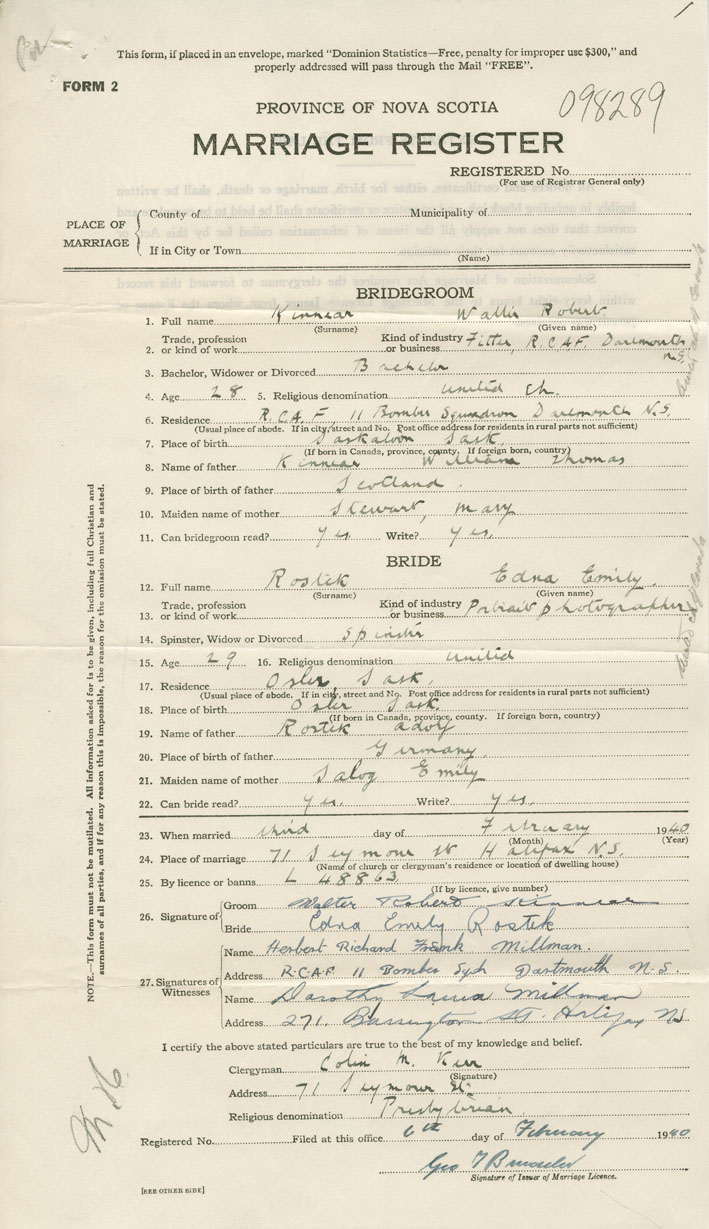 This form, if placed in an envelope, marked "Dominion Statistics—Free, penalty for improper use $300," and
properly addressed will pass through the Mail "FREE".
FORM 2
098289
PROVINCE OF NOVA SCOTIA
MARRIAGE REGISTER
REGISTERED No.
(For use of Registrar General only)
PLACE OF MARRIAGE
County of Municipality of
If in City or Town
(Name)
BRIDEGROOM
1. Full name Kinnear Robert
(Surname) (Given name)
2. Trade, profession or kind of work Kind of industry or business Fitter, R.C.A.F. Dartmouth N.S.
3. Bachelor, Widower or Divorced Bachelor
4. Age 28 5. Religious denomination United Ch.
6. Residence R.C.A.F 11 Bomber Squadron Dartmouth N.S.
(Usual place of abode. If in city, street and No. Post office address for residents in rural parts not sufficient)
7. Place of birth Saskatoon Sask.
(If born in Canada, province, county. If foreign born, country)
8. Name of father Kinnear William Thomas
9. Place of birth of father Scotland.
10. Maiden name of mother Stewart, Mary
11. Can bridegroom read? Yes Write? Yes.
BRIDE
12. Full name Rostek Edna Emily.
(Surname) (Given name)
13. Trade, profession or kind of work Kind of industry or business Portrait photographer
14. Spinster, Widow or Divorced Spinster
15. Age 29 16. Religious denomination United
17. Residence Osler, Sask.
(Usual place of abode. If in city, street and No. Post office address for residents in rural parts not sufficient)
18. Place of birth Osler Sask.
(If born in Canada, province, county. If foreign born, country)
19. Name of father Rostek Adolf
20. Place of birth of father Germany.
21. Maiden name of mother Emily
22. Can bride read? Yes. Write? Yes.
23. When married third day of February 1940
(Month) (Year)
24. Place of marriage 71 Seymour St Halifax N.S.
(Name of church or clergyman's residence or location of dwelling house)
25. By licence or banns L 48863
(If by licence, give number)
26. Signature of
Groom Walter Robert Kinnear
Bride Edna Emily Rostek
27. Signatures of Witnesses
Name Herbert Richard Frank Millman.
Address R.C.A.F 11 Bomber Sqdn Dartmouth N.S.
Name Dorothy Millman
Address 271, Barrington St. Halifax NS
I certify the above stated particulars are true to the best of my knowledge and belief.
Clergyman Colin M. Kerr
(Signature)
Address 71 Seymour St.
Religious denomination Presbyterian
Registered No. Filed at this office 6th day of February 1940
Signature of Issuer of Marriage Licence.
[SEE OTHER SIDE]
NOTE.—This form must not be mutilated. All information asked for is to be given, including full Christian and
surnames of all parties, and if for any reason this is impossible, the reason for the omission must be stated.